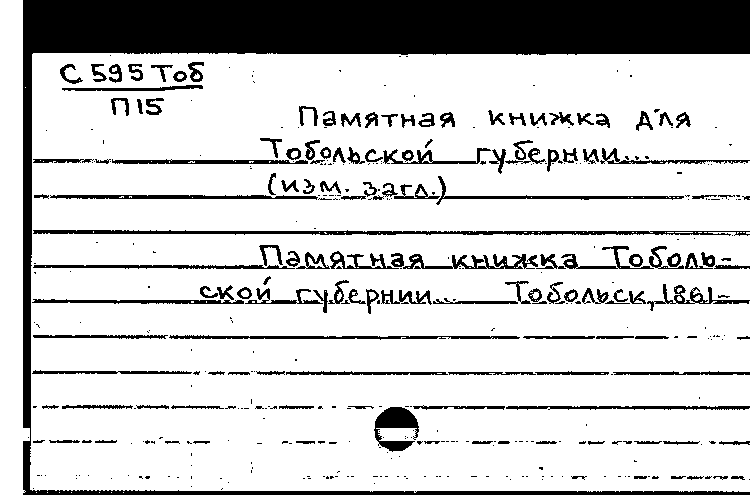 С 595 Тоб
П 15
Памятная книжка для
Тобольской губернии...
(изм. загл.)
Памятная книжка Тоболь-
ской губернии... Тобольск, 1861-